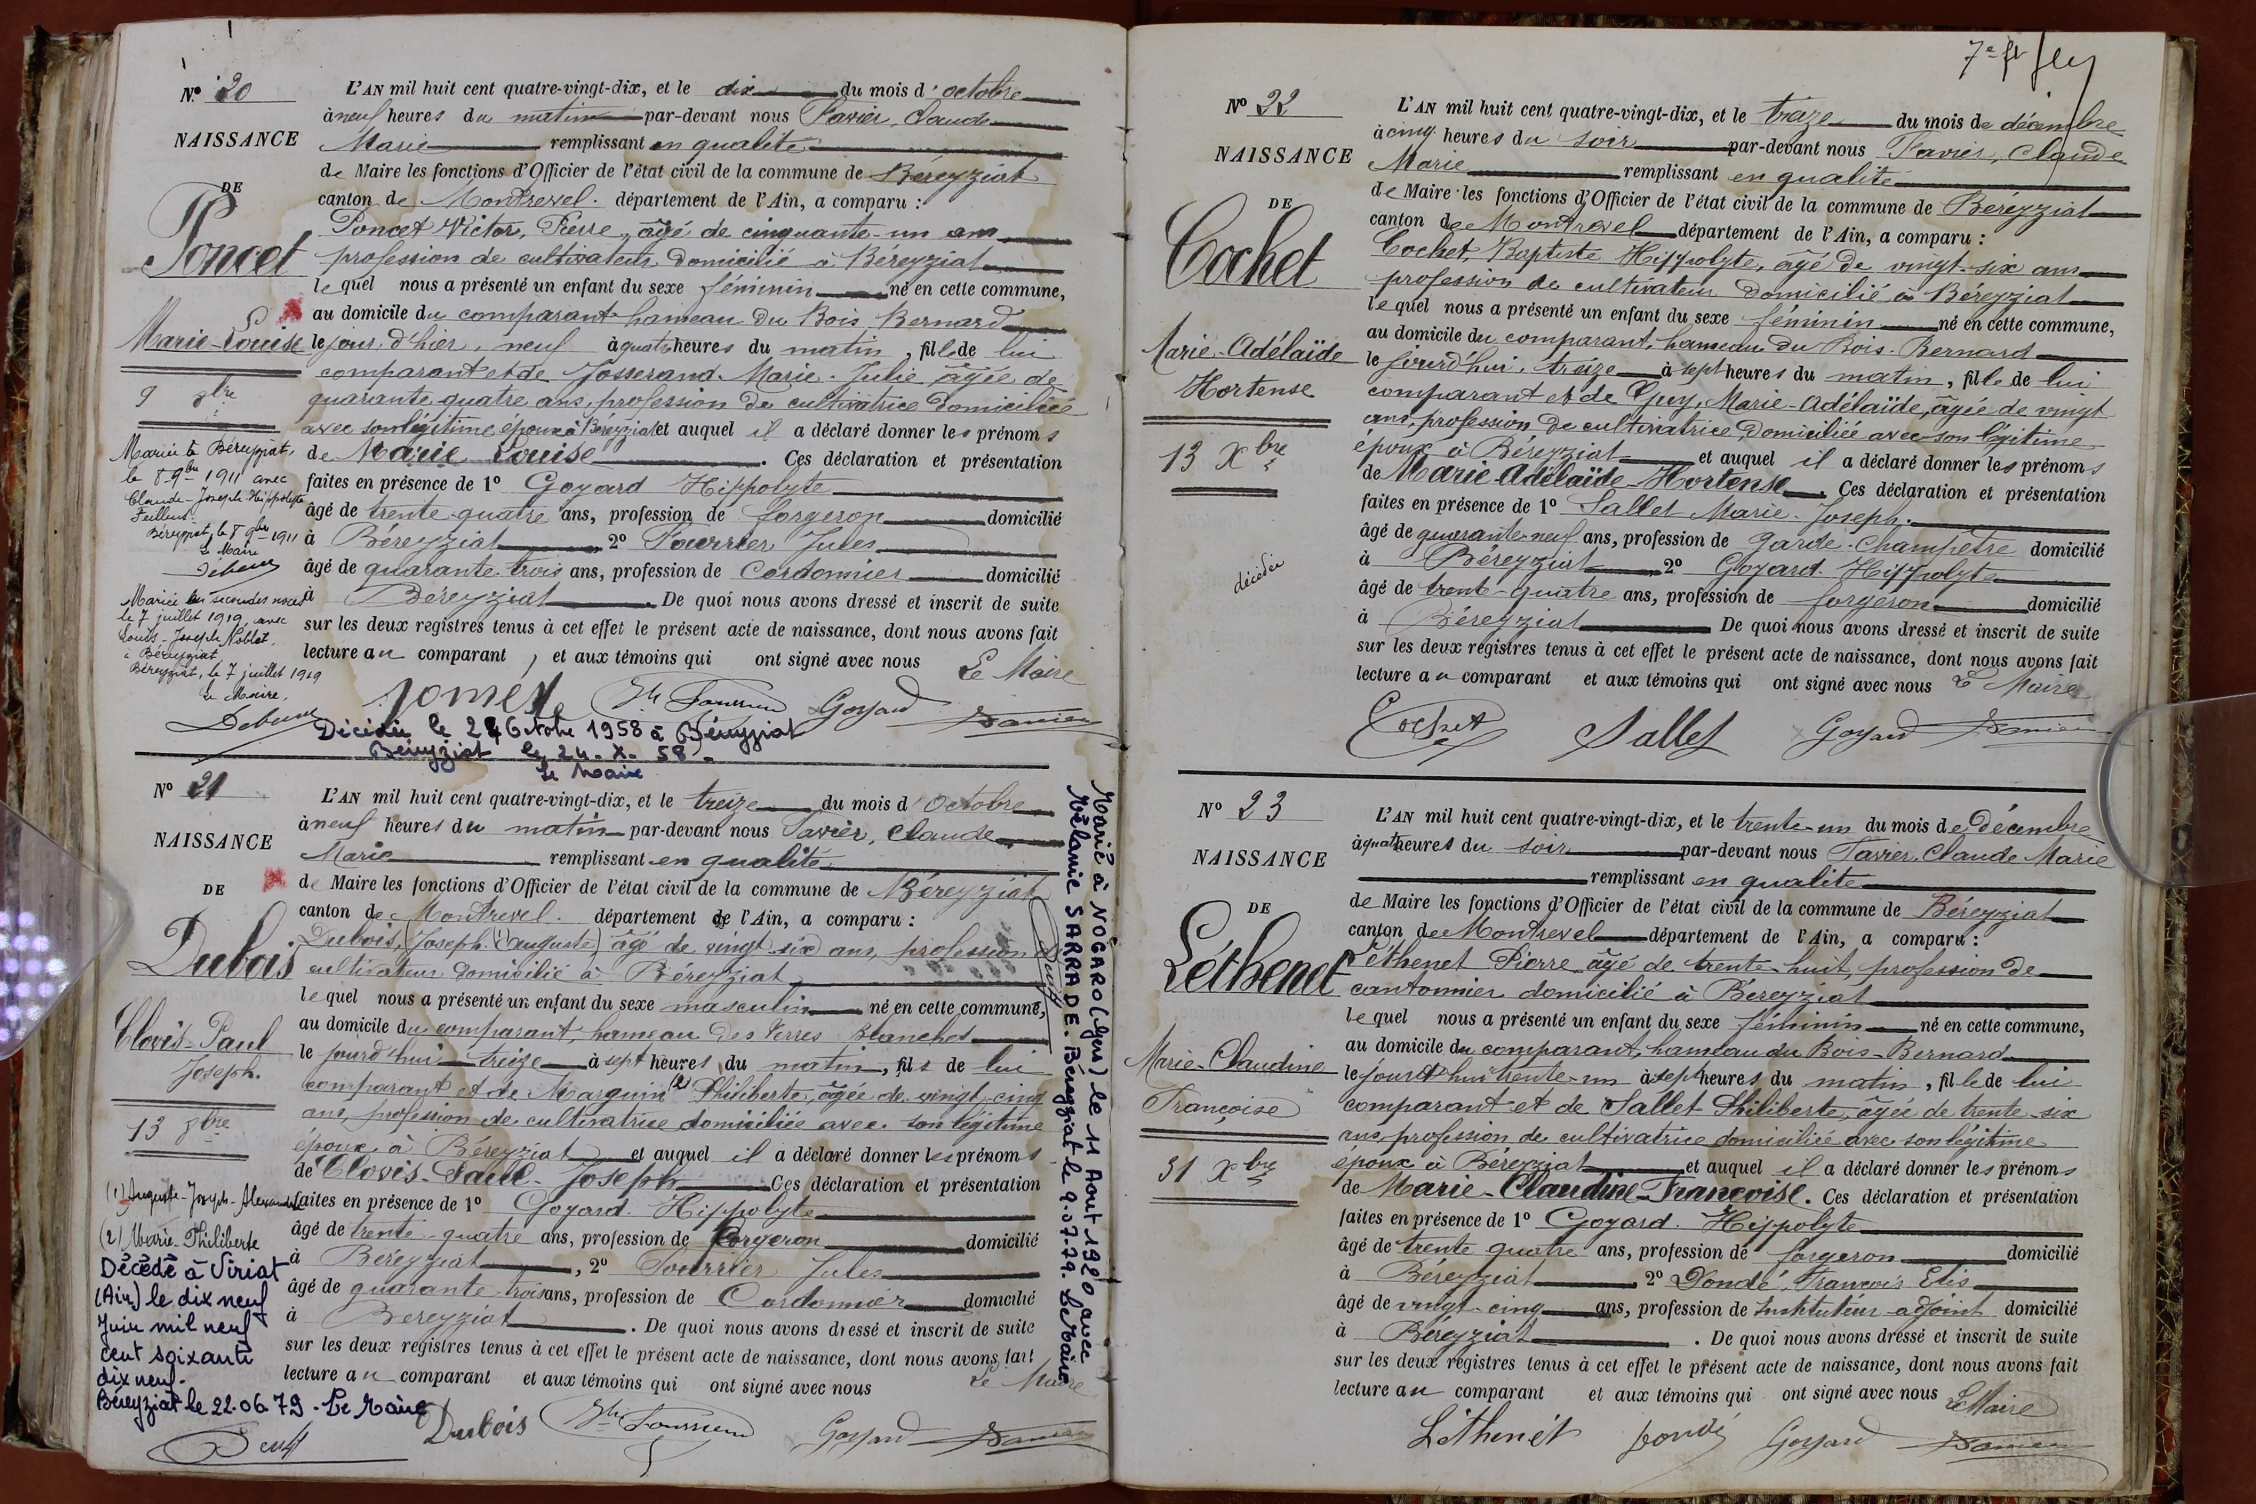 Nº 20
NAISSANCE
DE
Poncet
Marie-Louise
9 8bre
Mariée à Béreyziat,
le 8 9bre 1911 avec
Claude-Joseph-Hippolyte
Feillens.
Béreyziat, le 8 9bre 1911
Le Maire
Mariée en secondes noces
le 7 juillet 1919, avec
Louis-Joseph Noblet,
à Béreyziat
Béreyziat, le 7 juillet 1919
Le Maire,
L'AN mil huit cent quatre-vingt-dix, et le dix du mois d'octobre
à neuf heures du matin par-devant nous Favier, Claude
Marie remplissant en qualité
de Maire les fonctions d'Officier de l'état civil de la commune de Béreyziat
canton de Montrevel. département de l'Ain, a comparu :
Poncet Victor, Pierre, âgé de cinquante-un ans
profession de cultivateur domicilié à Béreyziat
lequel nous a présenté un enfant du sexe féminin né en cette commune,
au domicile du comparant hameau du Bois Bernard
le jour d'hier, neuf à quatre heures du matin, fille de lui
comparant et de Josserand Marie-Julie âgée de
quarante quatre ans, profession de cultivatrice domiciliée
avec son légitime époux à Béreyziat et auquel il a déclaré donner les prénoms
de Marie Louise. Ces déclaration et présentation
faites en présence de 1º Goyard Hippolyte
âgé de trente-quatre ans, profession de forgeron domicilié
à Béreyziat 2º Fourrier Jules
âgé de quarante-trois ans, profession de Cordonnier domicilié
à Béreyziat. De quoi nous avons dressé et inscrit de suite
sur les deux registres tenus à cet effet le présent acte de naissance, dont nous avons fait
lecture au comparant, et aux témoins qui ont signé avec nous Le Maire
Goyard
Décédée le 24 Octobre 1958 à Béreyziat
Béreyziat le 24-X-58-
Le Maire
Nº 21
NAISSANCE
DE
Dubois
Clovis-Paul
Joseph.
13 8bre
(1) Auguste-Joseph-Alexandre
(2) Marie-Philiberte
Décédé à Viriat
(Ain) le dix neuf
Juin mil neuf
cent soixante
dix neuf.
Béreyziat le 22.06.79 - Le Maire
L'AN mil huit cent quatre-vingt-dix, et le treize du mois d'Octobre
à neuf heures du matin par-devant nous Favier, Claude
Marie remplissant en qualité
de Maire les fonctions d'Officier de l'état civil de la commune de Béreyziat
canton de Montrevel. département de l'Ain, a comparu :
Dubois, (Joseph (1) Auguste) âgé de vingt-six ans, profession
cultivateur domicilié à Béreyziat
lequel nous a présenté un enfant du sexe masculin né en cette commune,
au domicile du comparant, hameau des Terres Blanches
le jourd'hui treize à sept heures du matin, fils de lui
comparant et de Marguin (2) Philiberte, âgée de vingt-cinq
ans, profession de cultivatrice domiciliée avec son légitime
époux à Béreyziat et auquel il a déclaré donner les prénoms
de Clovis-Paul-Joseph Ces déclaration et présentation
faites en présence de 1º Goyard Hippolyte
âgé de trente-quatre ans, profession de forgeron domicilié
à Béreyziat, 2º Fourrier Jules
âgé de quarante-trois ans, profession de Cordonnier domicilié
à Béreyziat. De quoi nous avons dressé et inscrit de suite
sur les deux registres tenus à cet effet le présent acte de naissance, dont nous avons fait
lecture au comparant et aux témoins qui ont signé avec nous Le Maire
Dubois Goyard
Marié à NOGARO (Gers) le 11 Aout 1920 avec
Mélanie SARRADE. Béreyziat le 9.07.79. Le Maire
Nº 22
NAISSANCE
DE
Cochet
Marie-Adélaïde
Hortense
13 Xbre
décédée
L'AN mil huit cent quatre-vingt-dix, et le treize du mois de décembre
à cinq heures du soir par-devant nous Favier, Claude
Marie remplissant en qualité
de Maire les fonctions d'Officier de l'état civil de la commune de Béreyziat
canton de Montrevel département de l'Ain, a comparu :
Cochet, Baptiste Hippolyte, âgé de vingt-six ans
profession de cultivateur domicilié à Béreyziat
lequel nous a présenté un enfant du sexe féminin né en cette commune,
au domicile du comparant, hameau du Bois-Bernard
le jourd'hui, treize à sept heures du matin, fille de lui
comparant et de Guy, Marie-Adélaïde, âgée de vingt
ans, profession de cultivatrice, domiciliée avec son légitime
époux à Béreyziat et auquel il a déclaré donner les prénoms
de Marie Adélaïde-Hortense. Ces déclaration et présentation
faites en présence de 1º Sallet Marie-Joseph.
âgé de quarante-neuf ans, profession de garde-champêtre domicilié
à Béreyziat 2º Goyard Hippolyte
âgé de trente-quatre ans, profession de forgeron domicilié
à Béreyziat De quoi nous avons dressé et inscrit de suite
sur les deux registres tenus à cet effet le présent acte de naissance, dont nous avons fait
lecture au comparant et aux témoins qui ont signé avec nous Le Maire
Cochet Sallet Goyard
Nº 23
NAISSANCE
DE
Léthenet
Marie-Claudine
Françoise
31 Xbre
L'AN mil huit cent quatre-vingt-dix, et le trente-un du mois de Décembre
à quatre heures du soir par-devant nous Favier, Claude Marie
remplissant en qualité
de Maire les fonctions d'Officier de l'état civil de la commune de Béreyziat
canton de Montrevel département de l'Ain, a comparu :
Léthenet Pierre âgé de trente-huit, profession de
cantonnier domicilié à Béreyziat
lequel nous a présenté un enfant du sexe féminin né en cette commune,
au domicile du comparant, hameau du Bois-Bernard
le jourd'hui trente-un à sept heures du matin, fille de lui
comparant et de Sallet Philiberte, âgée de trente-six
ans, profession de cultivatrice domiciliée avec son légitime
époux à Béreyziat et auquel il a déclaré donner les prénoms
de Marie-Claudine-Françoise. Ces déclaration et présentation
faites en présence de 1º Goyard Hippolyte
âgé de trente quatre ans, profession de forgeron domicilié
à Béreyziat 2º Dondé, François Elis
âgé de vingt-cinq ans, profession de Instituteur-adjoint domicilié
à Béreyziat. De quoi nous avons dressé et inscrit de suite
sur les deux registres tenus à cet effet le présent acte de naissance, dont nous avons fait
lecture au comparant et aux témoins qui ont signé avec nous Le Maire
Léthenet Dondé Goyard